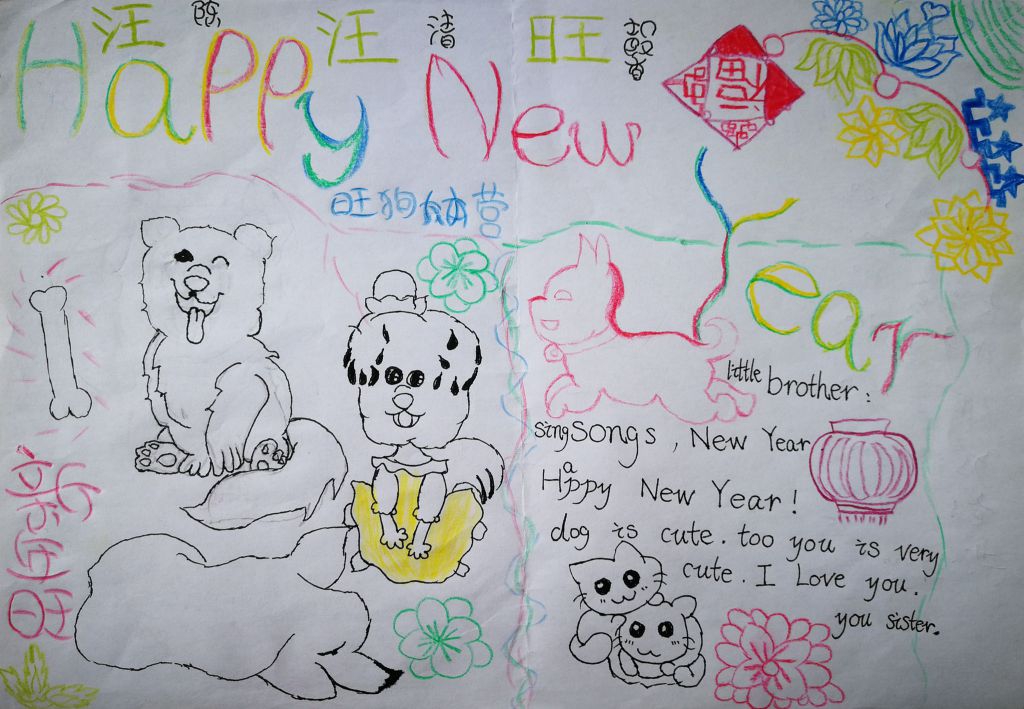 汪 陈 汪 清 旺
Happy New
Year
福
旺狗
little brother:
sing songs, New Year
Happy New Year!
dog is cute. too you is very
cute. I Love you.
you sister.